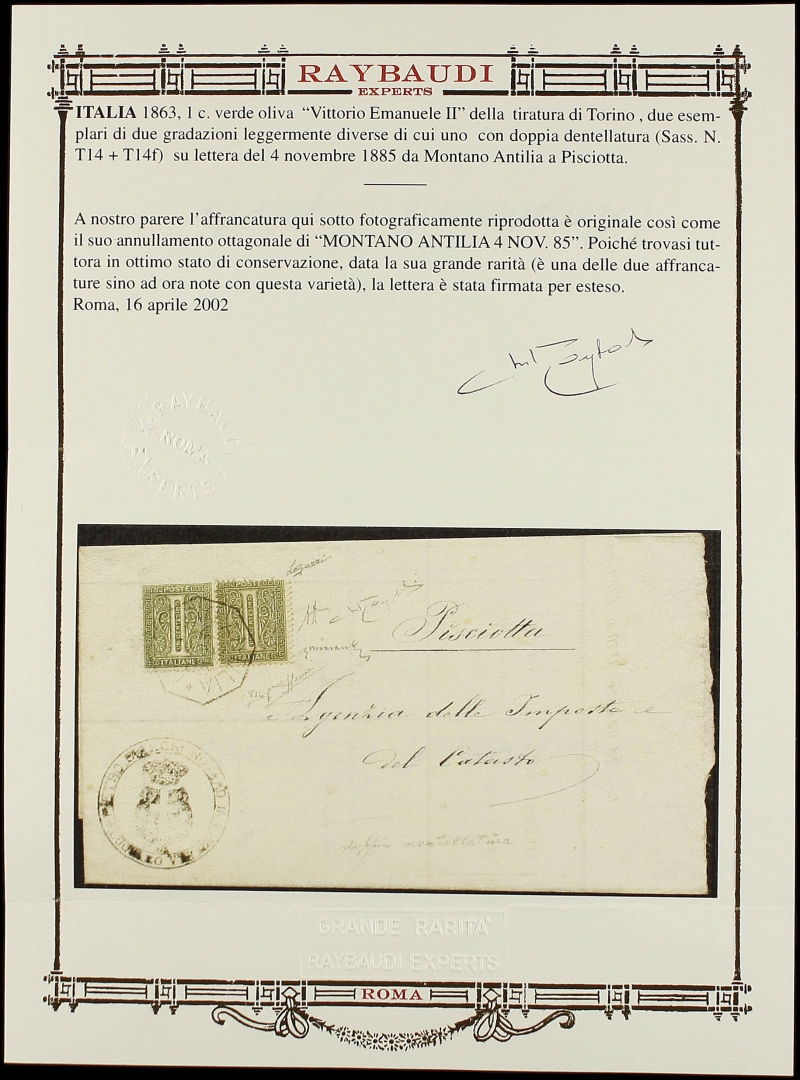 RAYBAUDI
EXPERTS
ITALIA 1863, 1 c. verde oliva “Vittorio Emanuele II” della tiratura di Torino , due esem-
plari di due gradazioni leggermente diverse di cui uno con doppia dentellatura (Sass. N.
T14 + T14f) su lettera del 4 novembre 1885 da Montano Antilia a Pisciotta.
A nostro parere l’affrancatura qui sotto fotograficamente riprodotta è originale così come
il suo annullamento ottagonale di “MONTANO ANTILIA 4 NOV. 85”. Poiché trovasi tut-
tora in ottimo stato di conservazione, data la sua grande rarità (è una delle due affranca-
ture sino ad ora note con questa varietà), la lettera è stata firmata per esteso.
Roma, 16 aprile 2002
RAYBAUDI
ROMA
EXPERTS
POSTE
POSTE
1
1
ITALIANE
ITALIANE
Pisciotta
Agenzia delle Imposte e
del Catasto
doppia dentellatura
GRANDE RARITA'
RAYBAUDI EXPERTS
ROMA